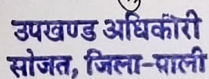 उपखण्ड अधिकारी
सोजत, जिला-पाली